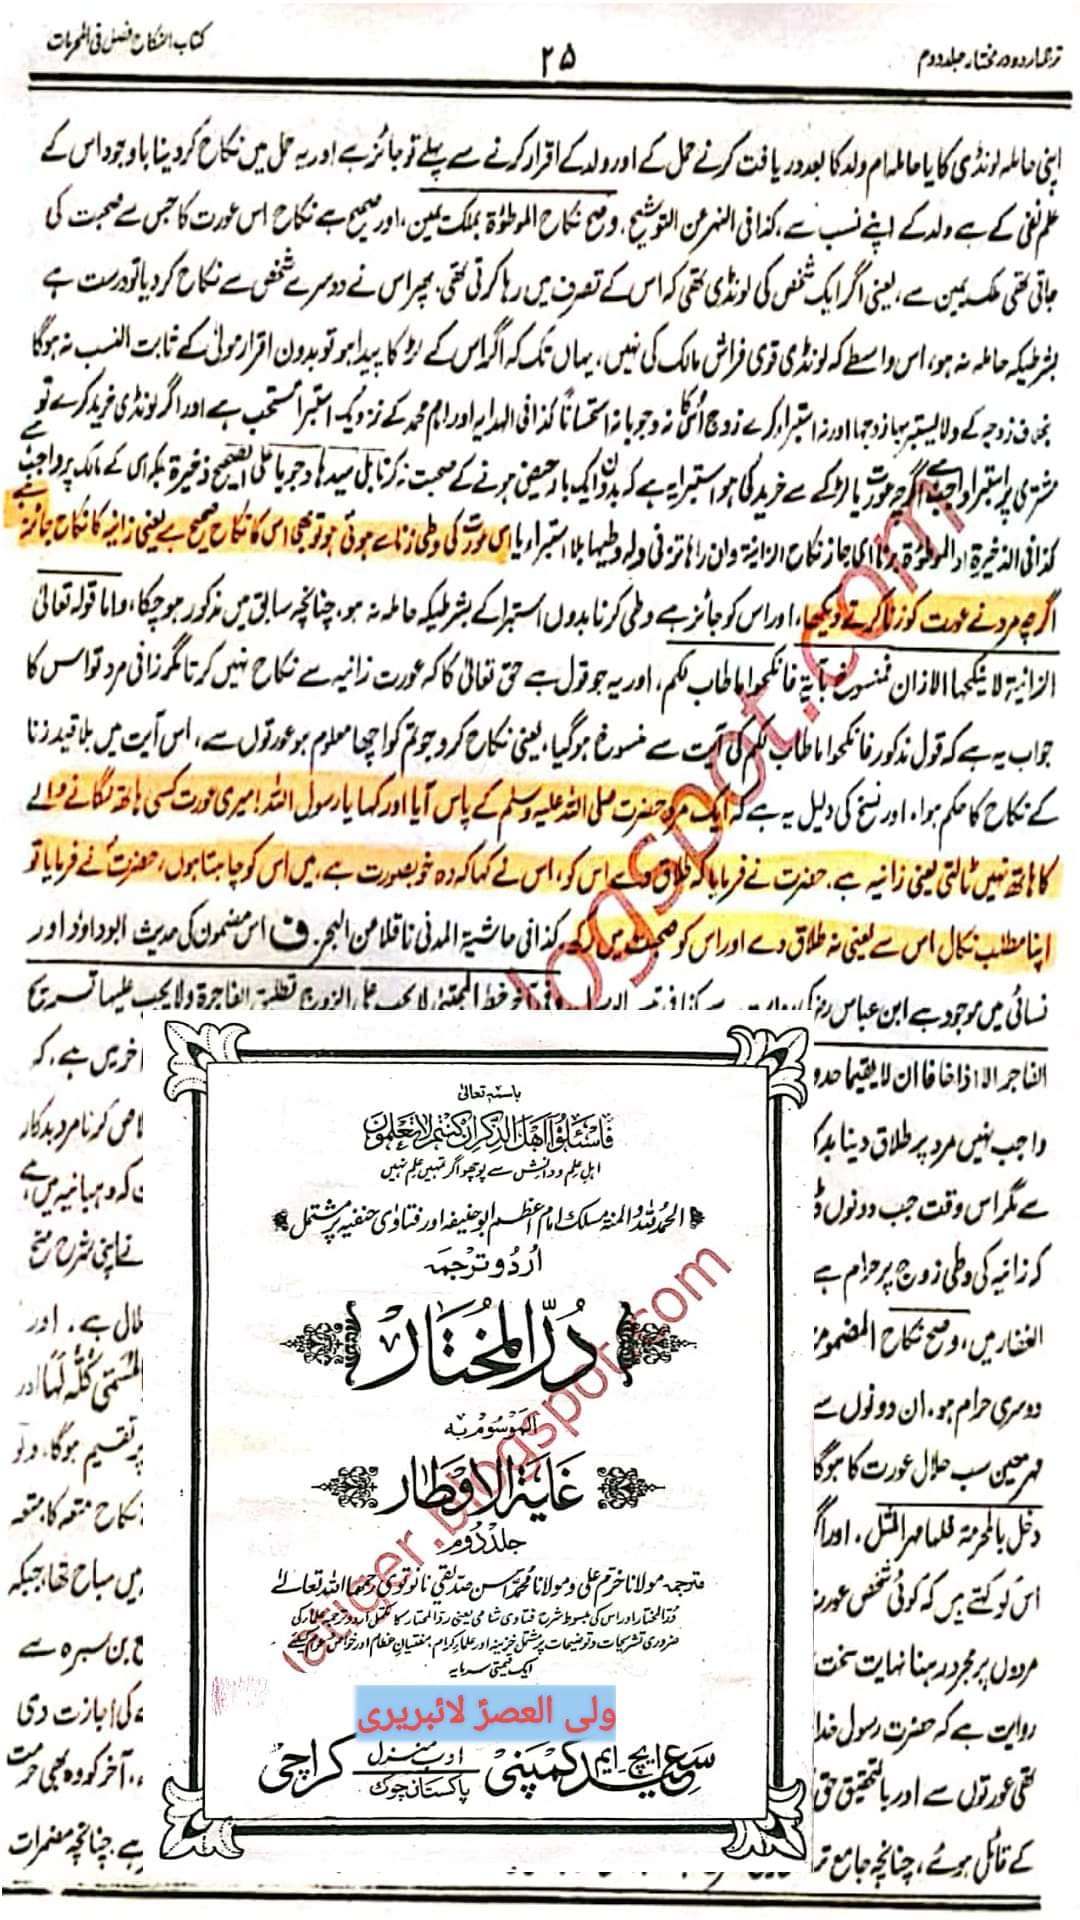 ترجمہ اردو در مختار جلد دوم
۲۵
کتاب النکاح فصل فی المحرمات
اپنی حاملہ لونڈی کا یا حاملہ ام ولد کا بعد دریافت کرنے حمل کے اور ولد کے اقرار کرنے سے پہلے تو جائز ہے اور یہ حمل میں نکاح کر دینا باوجود اس کے
علم نفی کے ہے ولد کے اپنے نسب سے، کذا فی النہر عن التوشیح. وصح نکاح الموطوۃ بملک یمین، اور صحیح ہے نکاح اس عورت کا جس سے صحبت کی
جاتی تھی ملک یمین سے، یعنی اگر ایک شخص کی لونڈی تھی کہ اس کے تصرف میں رہا کرتی تھی. پھر اس نے دوسرے شخص سے نکاح کر دیا تو درست ہے
بشرطیکہ حاملہ نہ ہو، اس واسطے کہ لونڈی قوی فراش مالک کی نہیں، یہاں تک کہ اگر اس کے لڑکا پیدا ہو تو بدون اقرار مولیٰ کے ثابت النسب نہ ہوگا
بخلاف زوجہ کے ولا یستبرئہا زوجہا اور نہ استبراء کرے زوج اس کا نہ وجوبا نہ استحساناً کذا فی الہدایہ اور امام محمد کے نزدیک استبرا مستحب ہے اور اگر لونڈی خرید کرے تو
مشتری پر استبرا واجب ہے اگرچہ عورت یا لڑکے سے خرید کی ہو استبرا یہ ہے کہ بدون ایک بار حیض ہونے کے صحبت نہ کرنا بلی سیدہا وجوبا علی الصحیح ذخیرۃ بلکہ اس کے مالک پر واجب ہے
کذا فی الذخیرۃ او الموطوۃ بزنا ای جاز نکاح الزانیۃ وان راہا تزنی ولہ وطیہا بلا استبراء یا اس عورت کی وطی زنا سے ہوئی ہو تو بھی اس کا نکاح صحیح ہے یعنی زانیہ کا نکاح جائز ہے
اگرچہ مرد نے عورت کو زنا کرتے دیکھا، اور اس کو جائز ہے وطی کرنا بدوں استبرا کے بشرطیکہ حاملہ نہ ہو، چنانچہ سابق میں مذکور ہو چکا، واما قولہ تعالیٰ
الزانیۃ لا ینکحہا الا زان فمنسوخ بآیۃ فانکحوا ما طاب لکم، اور یہ جو قول ہے حق تعالیٰ کا کہ عورت زانیہ سے نکاح نہیں کرتا مگر زانی مرد تو اس کا
جواب یہ ہے کہ قول مذکور فانکحوا ما طاب لکم کی آیت سے منسوخ ہو گیا، یعنی نکاح کرو جو تم کو اچھا معلوم ہو عورتوں سے، اس آیت میں بلا قید زنا
کے نکاح کا حکم ہوا، اور نسخ کی دلیل یہ ہے کہ ایک مرد حضرت صلی اللہ علیہ وسلم کے پاس آیا اور کہا یا رسول اللہ! میری عورت کسی ہاتھ لگانے والے
کا ہاتھ نہیں ٹالتی یعنی زانیہ ہے. حضرت نے فرمایا کہ طلاق دے اس کو، اس نے کہا کہ وہ خوبصورت ہے، میں اس کو چاہتا ہوں، حضرتؐ نے فرمایا تو
اپنا مطلب نکال اس سے یعنی نہ طلاق دے اور اس کو صحبت میں رکھ کذا فی حاشیۃ المدنی ناقلا من البحر. ف اس مضمون کی حدیث ابوداؤد اور
نسائی میں موجود ہے ابن عباس رضؓ کی روایت سے لا یجب علی الزوج تطلیق الفاجرۃ ولا یجب علیہا تسریح
الفاجر الا اذا خافا ان لا یقیما حدو
اخر میں ہے، کہ
واجب نہیں مرد پر طلاق دینا بدکا
لاص کرنا مرد بدکار
سے مگر اس وقت جب دونوں
ت کہ وہبانیہ میں ہے
کہ زانیہ کی وطی زوج پر حرام ہے
نے اپنی شرح منح
الغفار میں، وصح نکاح المضموم
لال ہے. اور
دوسری حرام ہو، ان دونوں سے
المسمی کلہ لہا اور
مہر معین سب حلال عورت کا ہوگا
پر تقسیم ہوگا. ولو
دخل بالمحرمۃ فلہا مہر المثل، اور اگ
نکاح متعہ کا، متعہ
اس کو کہتے ہیں کہ کوئی شخص عورت
میں مباح تھا، جبکہ
مردوں پر مجرد رہنا نہایت سخت
ع بن سبرہ سے
روایت ہے کہ حضرت رسول خدا
کی اجازت دی
تھی عورتوں سے اور بالتحقیق حق
، آخر کو وہ بھی حرمت
کے قائل ہوئے، چنانچہ جامع تر
ہے چنانچہ مضمرات
باسمہ تعالیٰ
فاسئلوا اھل الذکر ان کنتم لا تعلمون
اہل علم و دانش سے پوچھو اگر تمہیں علم نہیں
الحمد للہ والمنۃ مسلک امام اعظم ابو حنیفہ اور فتاوی حنفیہ پر مشتمل
اردو ترجمہ
دُرّ المختار
الموسوم بہ
غایۃ الاوطار
جلد دوم
مترجمہ مولانا خرم علی و مولانا محمد احسن صدیقی نانوتوی رحمہما اللہ تعالیٰ
در المختار اور اس کی مبسوط شرح فتاوی شامی یعنی رد المحتار کا مکمل اردو ترجمہ علماء کی
ضروری تشریحات و توضیحات پر مشتمل خزینہ اور علماء کرام، مفتیان عظام اور خواص و عوام کیلئے
ایک قیمتی سرمایہ
ولی العصرؑ لائبریری
ایچ ایم سعید کمپنی ادب منزل پاکستان چوک کراچی
logspot.com
latiger.blogspot.com